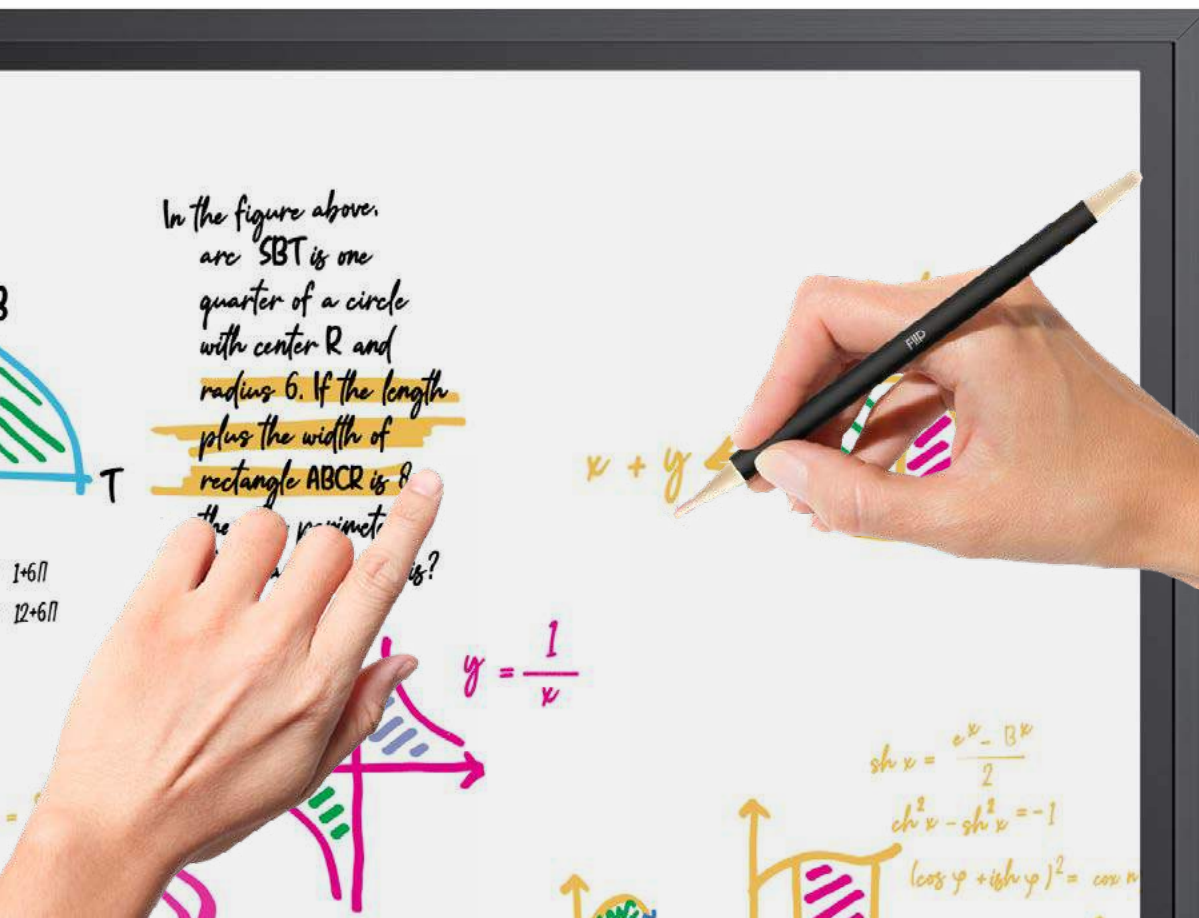 In the figure above,
arc SBT is one
quarter of a circle
with center R and
radius 6. If the length
plus the width of
rectangle ABCR is 8
is?
B
T
1+6Π
12+6Π
x + y
FIID
y = 1/x
sh x = e^x - B^x / 2
ch²x - sh²x = -1
(cos φ + ish φ)² = cox n
=